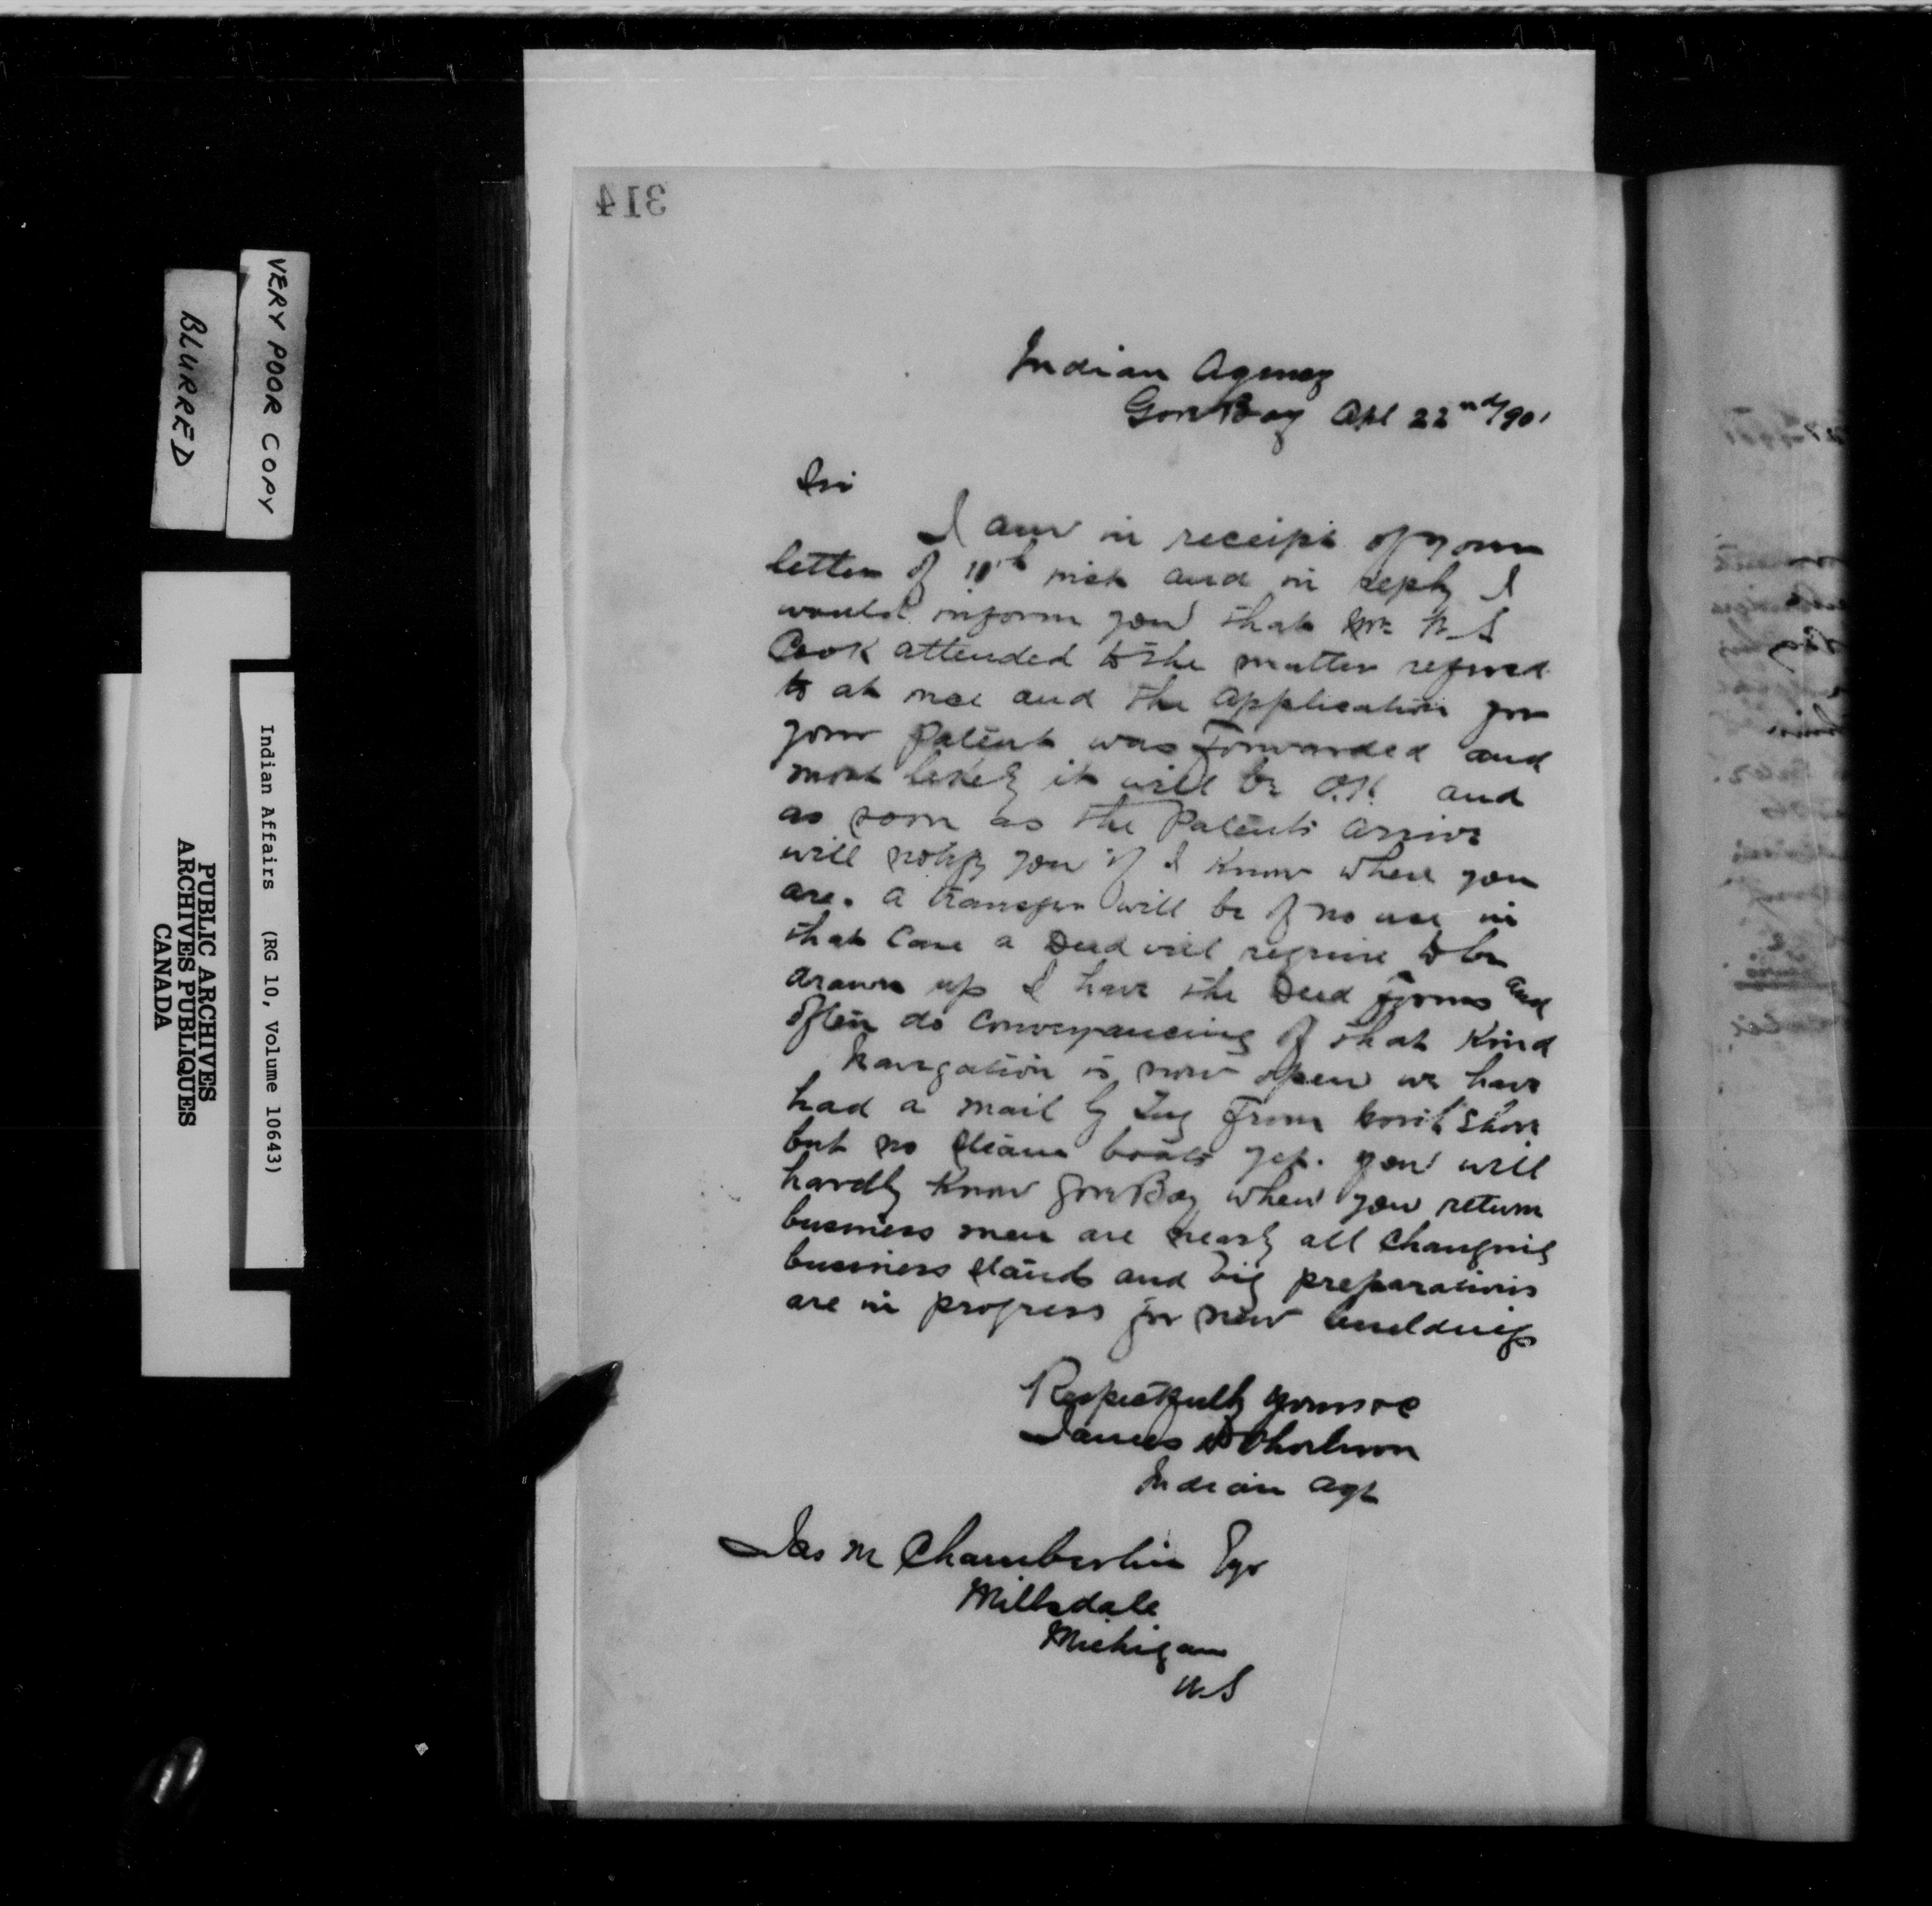 314
Indian Agency
Gore Bay Apl 22nd/901
Sir
I am in receipt of your
letter of 10th inst and in reply I
would inform you that Mr W S
Cook attended to the matter refered
to at once and the application for
your Patent was Forwarded and
most likely it will be O.K. and
as soon as the Patents arrive
will notify you if I know where you
are. a transfer will be of no use in
that Case a Deed will require to be
drawn up I have the Deed Forms and
often do Conveyancing of that Kind
Navigation is now open we have
had a mail by Tug From North Shore
but no steam boats yet. you will
hardly Know Gore Bay when you return
business men are nearly all Changing
business stands and big preparations
are in progress for new buildings
Respectfully yours &c
James
Indian Agt
Jas M Chamberlin Esqr
Michigan
U.S
VERY POOR COPY
BLURRED
Indian Affairs (RG 10, Volume 10643)
PUBLIC ARCHIVES
ARCHIVES PUBLIQUES
CANADA